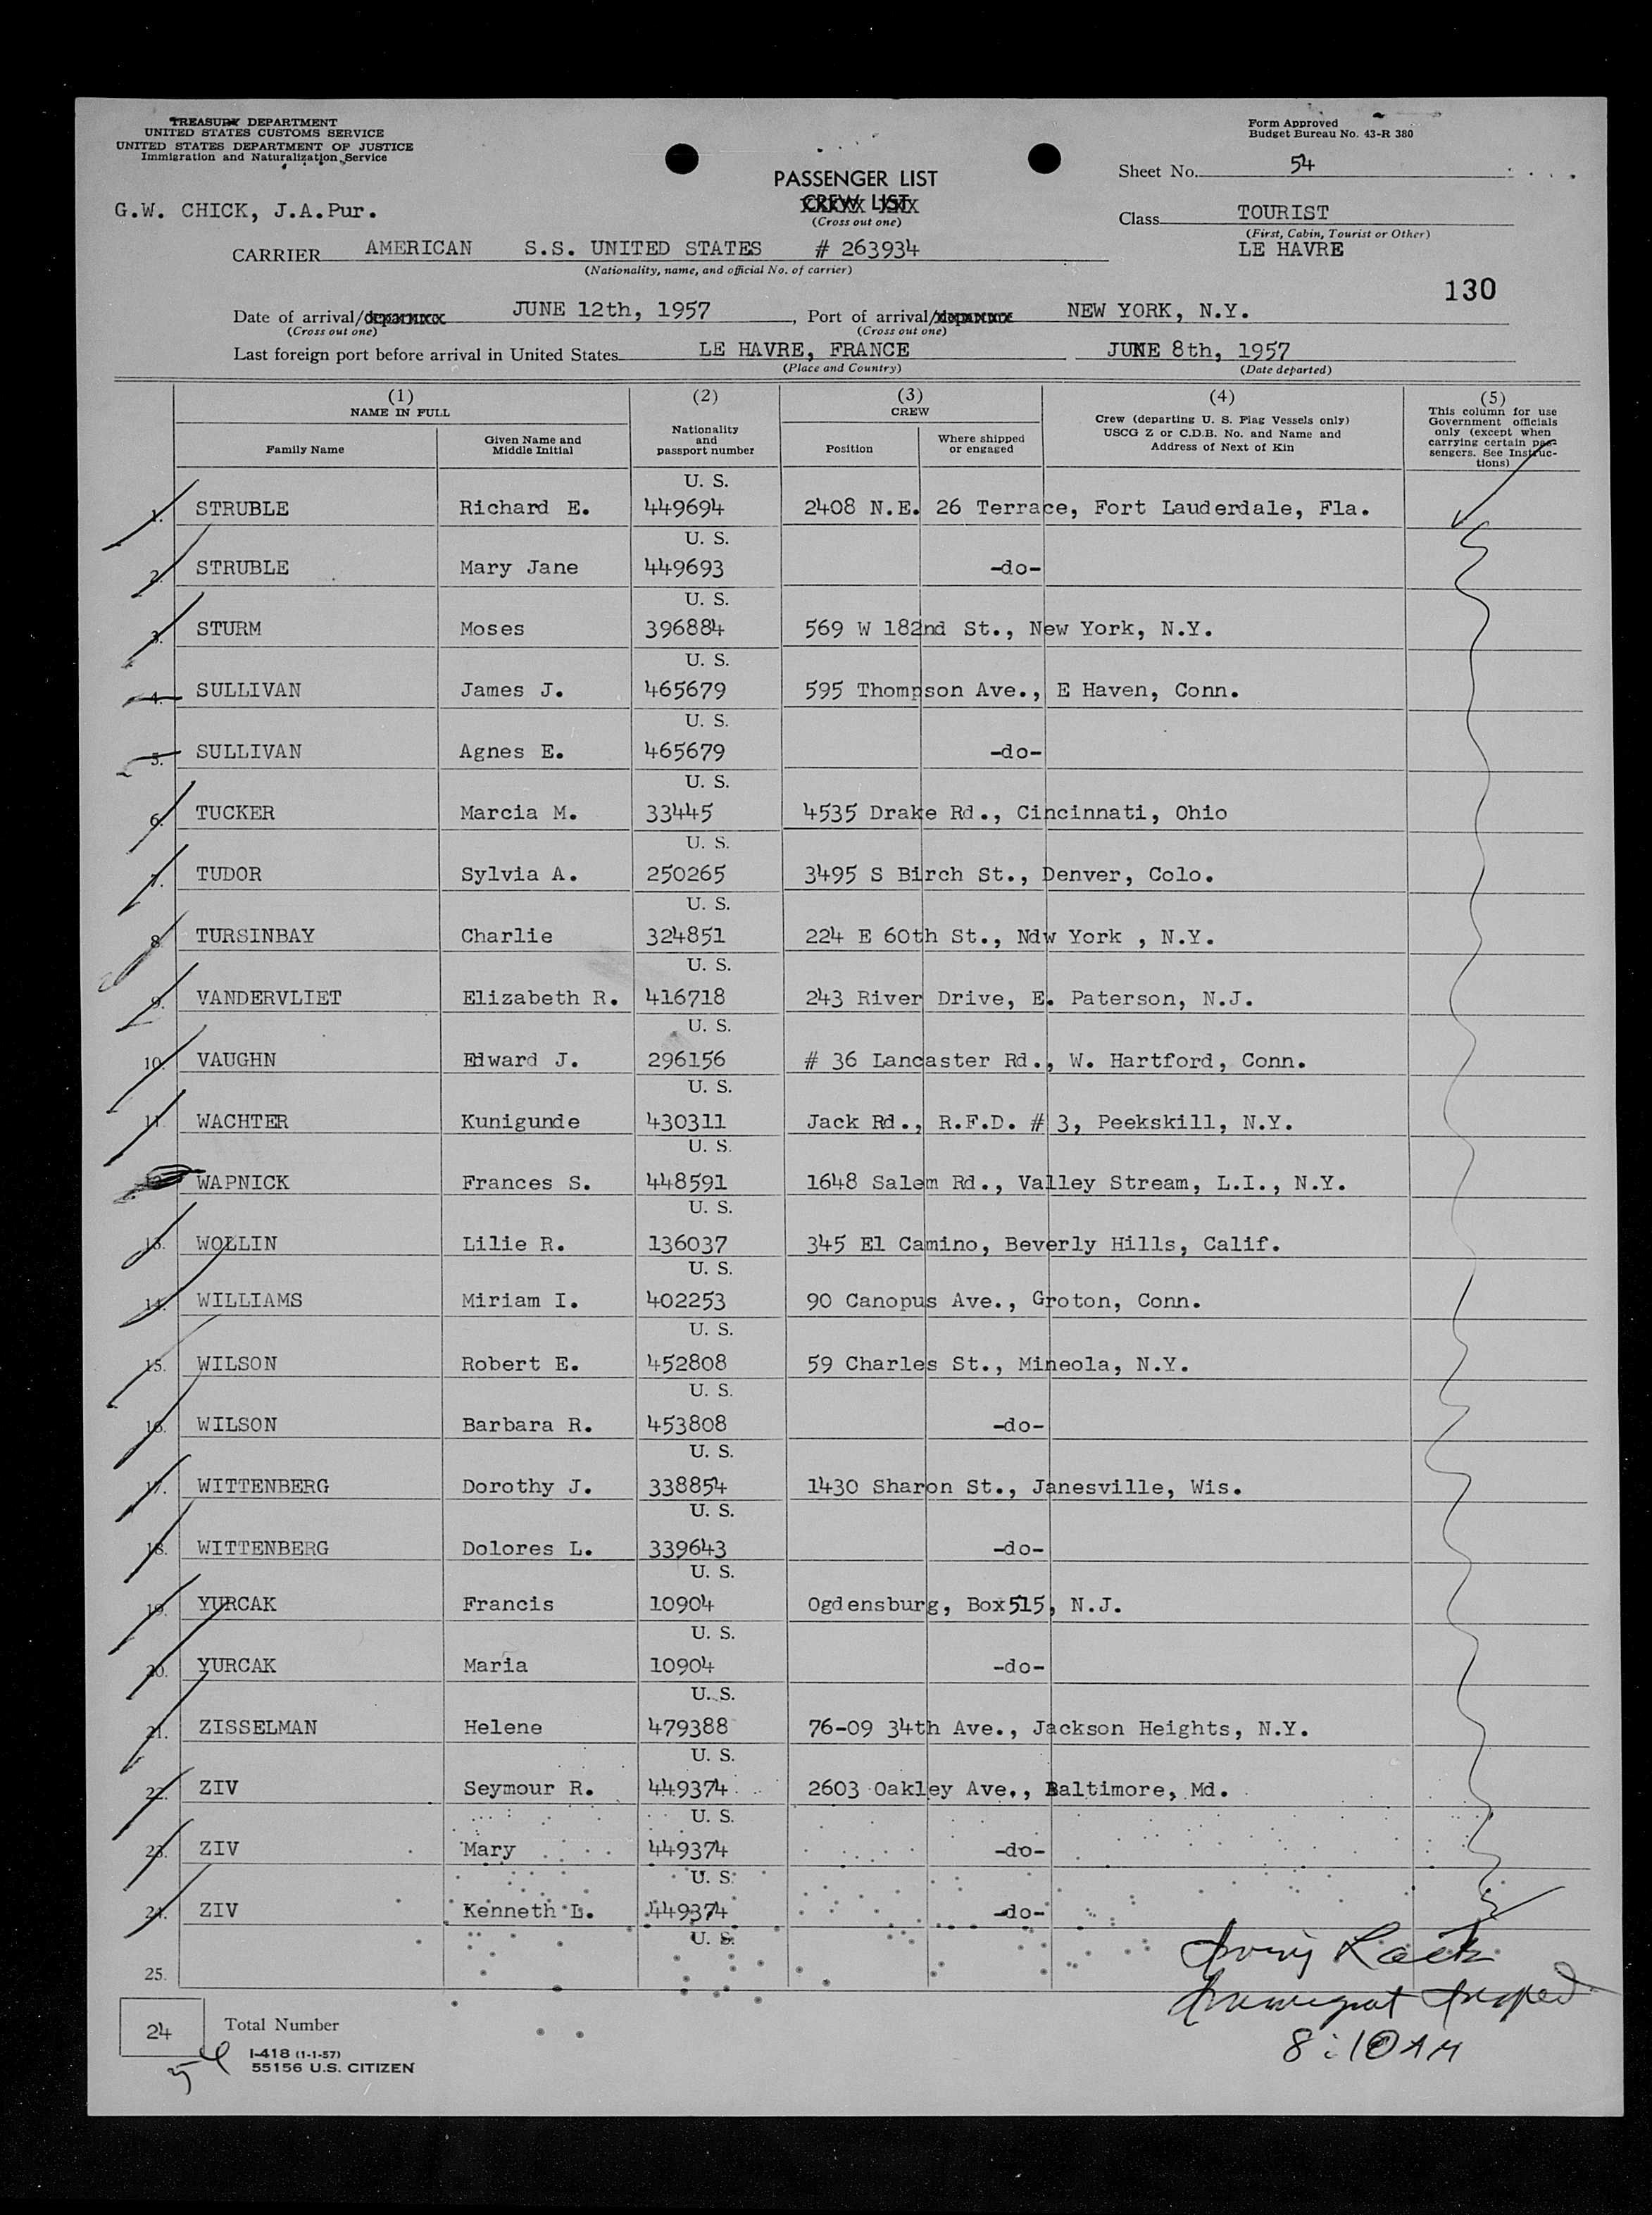 TREASURY DEPARTMENT
UNITED STATES CUSTOMS SERVICE
UNITED STATES DEPARTMENT OF JUSTICE
Immigration and Naturalization Service
Form Approved
Budget Bureau No. 43-R 380
PASSENGER LIST
CREW LIST
(Cross out one)
Sheet No. 54
G.W. CHICK, J.A.Pur.
Class TOURIST
(First, Cabin, Tourist or Other)
LE HAVRE
CARRIER AMERICAN S.S. UNITED STATES # 263934
(Nationality, name, and official No. of carrier)
130
Date of arrival/ JUNE 12th, 1957, Port of arrival/ NEW YORK, N.Y.
(Cross out one) (Cross out one)
Last foreign port before arrival in United States LE HAVRE, FRANCE JUNE 8th, 1957
(Place and Country) (Date departed)
(1) NAME IN FULL
Family Name
Given Name and Middle Initial
(2)
Nationality and passport number
(3) CREW
Position
Where shipped or engaged
(4)
Crew (departing U. S. Flag Vessels only)
USCG Z or C.D.B. No. and Name and
Address of Next of Kin
(5)
This column for use
Government officials
only (except when
carrying certain pas-
sengers. See Instruc-
tions)
U. S.
1. STRUBLE Richard E. 449694 2408 N.E. 26 Terrace, Fort Lauderdale, Fla.
U. S.
2. STRUBLE Mary Jane 449693 -do-
U. S.
3. STURM Moses 396884 569 W 182nd St., New York, N.Y.
U. S.
4. SULLIVAN James J. 465679 595 Thompson Ave., E Haven, Conn.
U. S.
5. SULLIVAN Agnes E. 465679 -do-
U. S.
6. TUCKER Marcia M. 33445 4535 Drake Rd., Cincinnati, Ohio
U. S.
7. TUDOR Sylvia A. 250265 3495 S Birch St., Denver, Colo.
U. S.
8. TURSINBAY Charlie 324851 224 E 60th St., Ndw York , N.Y.
U. S.
9. VANDERVLIET Elizabeth R. 416718 243 River Drive, E. Paterson, N.J.
U. S.
10. VAUGHN Edward J. 296156 # 36 Lancaster Rd., W. Hartford, Conn.
U. S.
11. WACHTER Kunigunde 430311 Jack Rd., R.F.D. # 3, Peekskill, N.Y.
U. S.
WAPNICK Frances S. 448591 1648 Salem Rd., Valley Stream, L.I., N.Y.
U. S.
13. WOLLIN Lilie R. 136037 345 El Camino, Beverly Hills, Calif.
U. S.
14. WILLIAMS Miriam I. 402253 90 Canopus Ave., Groton, Conn.
U. S.
15. WILSON Robert E. 452808 59 Charles St., Mineola, N.Y.
U. S.
16. WILSON Barbara R. 453808 -do-
U. S.
17. WITTENBERG Dorothy J. 338854 1430 Sharon St., Janesville, Wis.
U. S.
18. WITTENBERG Dolores L. 339643 -do-
U. S.
19. YURCAK Francis 10904 Ogdensburg, Box515, N.J.
U. S.
20. YURCAK Maria 10904 -do-
U. S.
21. ZISSELMAN Helene 479388 76-09 34th Ave., Jackson Heights, N.Y.
U. S.
22. ZIV Seymour R. 449374 2603 Oakley Ave., Baltimore, Md.
U. S.
23. ZIV Mary 449374 -do-
U. S.
24. ZIV Kenneth L. 449374 -do-
U. S.
25.
8:10 AM
24 Total Number
54
I-418 (1-1-57)
55156 U.S. CITIZEN